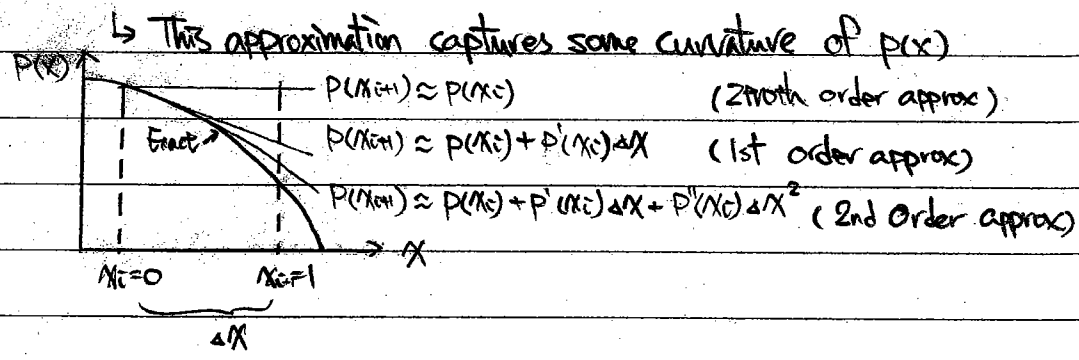 ↳ This approximation captures some curvature of p(x)
P(x)
P(xi+1) ≈ P(xi) (Zeroth order approx)
Exact
P(xi+1) ≈ P(xi) + P'(xi)ΔX (1st order approx)
P(xi+1) ≈ P(xi) + P'(xi)ΔX + P''(xi)ΔX² (2nd Order approx)
X
xi=0
xi+1=1
ΔX